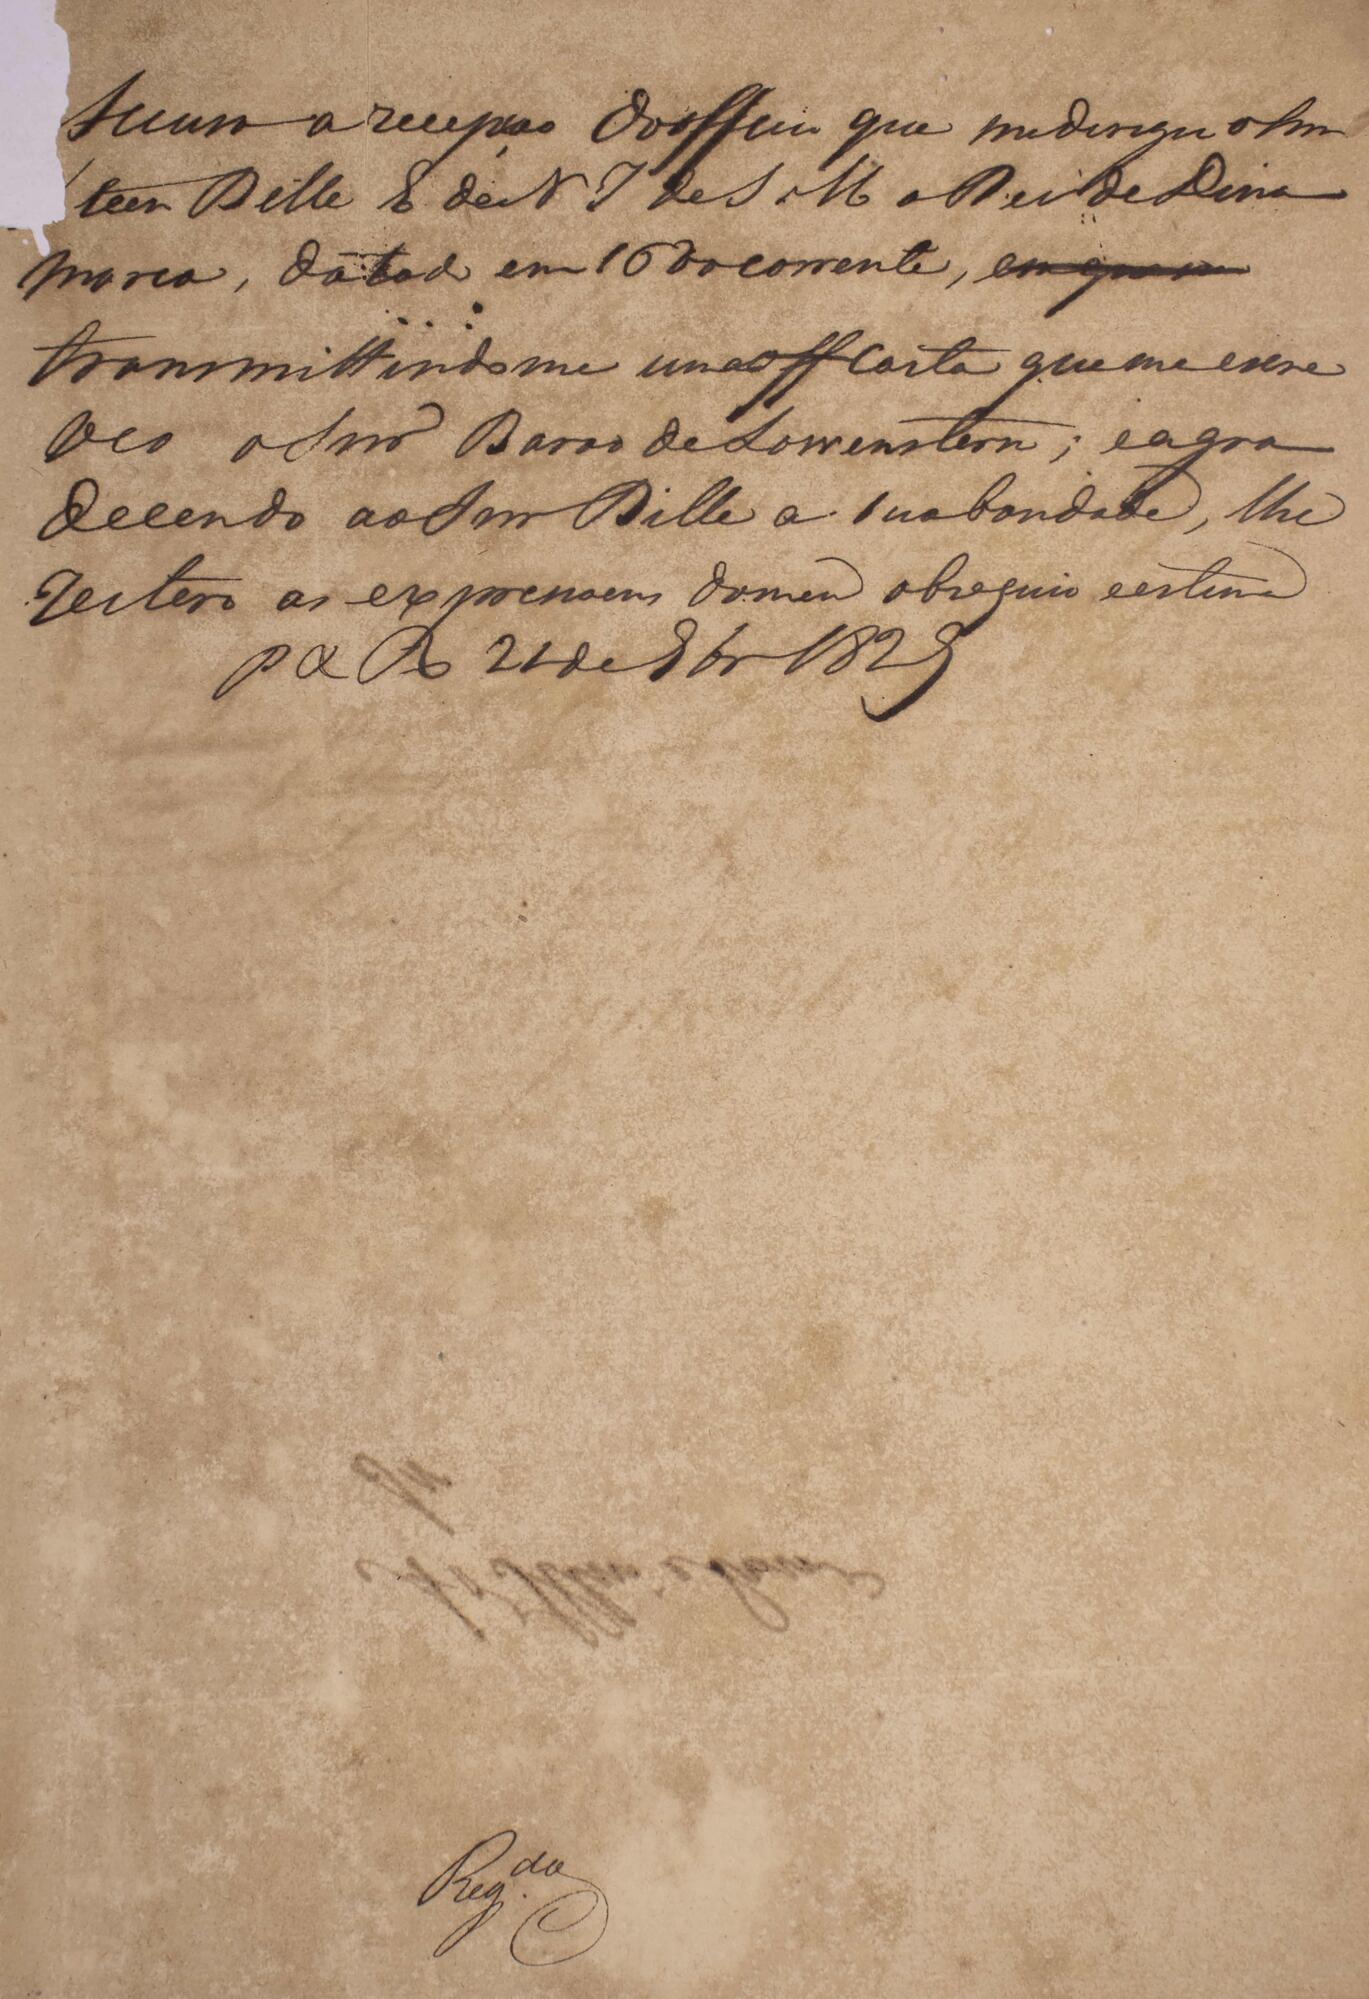 Accuso a recepção do officio que me dirigiu o Snr
teen Bille E de N I de S. M. o Rei de Dina
marca, datad em 16 do corrente, em que me
transmittindo me uma off Carta que me escre
veo o Snr Barao de Lowenstern; e agra
decendo ao Snr Bille a sua bondade, lhe
reitero as expressoens do meu obsequio e estima
P a R 21 de 8br 1829
Reg.da